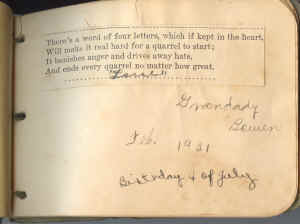 There's a word of four letters, which if kept in the heart,
Will make it real hard for a quarrel to start;
It banishes anger and drives away hate,
And ends every quarrel no matter how great.
Bowen
Feb. 1931
Birthday 4 of July